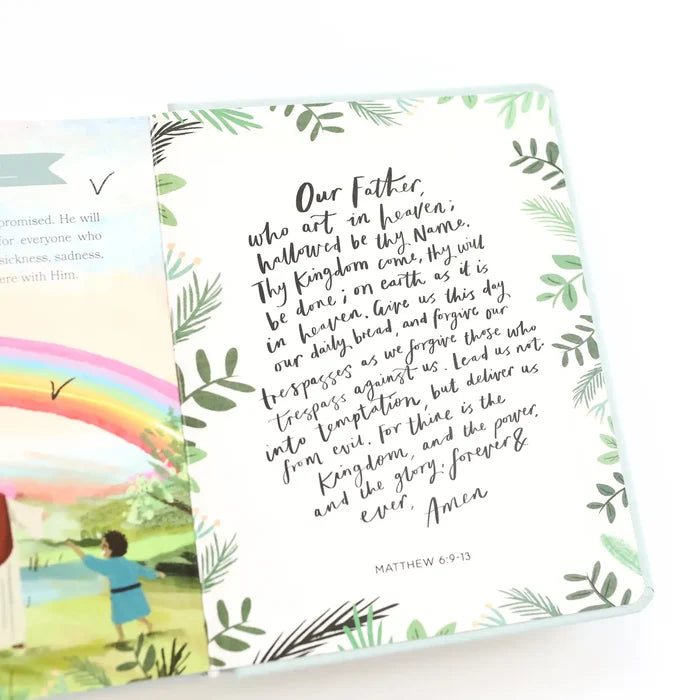 promised. He will
for everyone who
sickness, sadness,
ere with Him.
Our Father,
who art in heaven;
hallowed be thy Name.
Thy Kingdom come, thy will
be done; on earth as it is
in heaven. Give us this day
our daily bread, and forgive our
trespasses as we forgive those who
trespass against us. Lead us not
into temptation, but deliver us
from evil. For thine is the
Kingdom, and the power,
and the glory; forever &
ever, Amen
MATTHEW 6:9-13